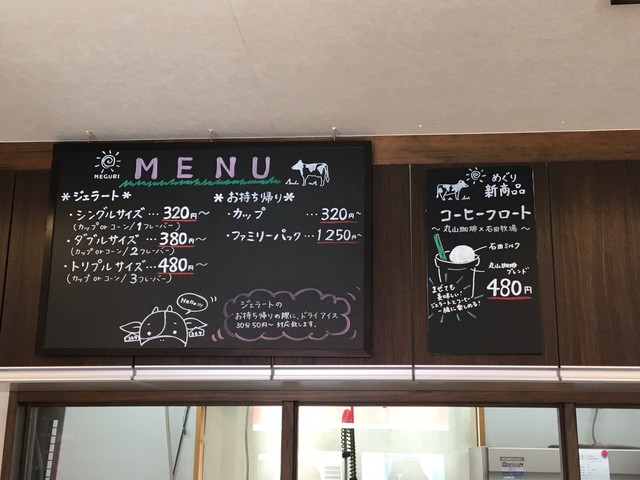 MEGURI
MENU
*ジェラート*
・シングルサイズ…320円〜
(カップ or コーン/1フレーバー)
・ダブルサイズ…380円〜
(カップ or コーン/2フレーバー)
・トリプルサイズ…480円〜
(カップ or コーン/3フレーバー)
*お持ち帰り*
・カップ …320円〜
・ファミリーパック…1,250円〜
Hello!!!
ジェラートの
お持ち帰りの際に、ドライアイス
30分50円〜 対応致します。
めぐり
新商品
コーヒーフロート
〜丸山珈琲×石田牧場〜
石田ミルク
丸山珈琲
ブレンド
480円
まぜても
美味しい!
ジェラートとコーヒー
一緒に楽しめる!